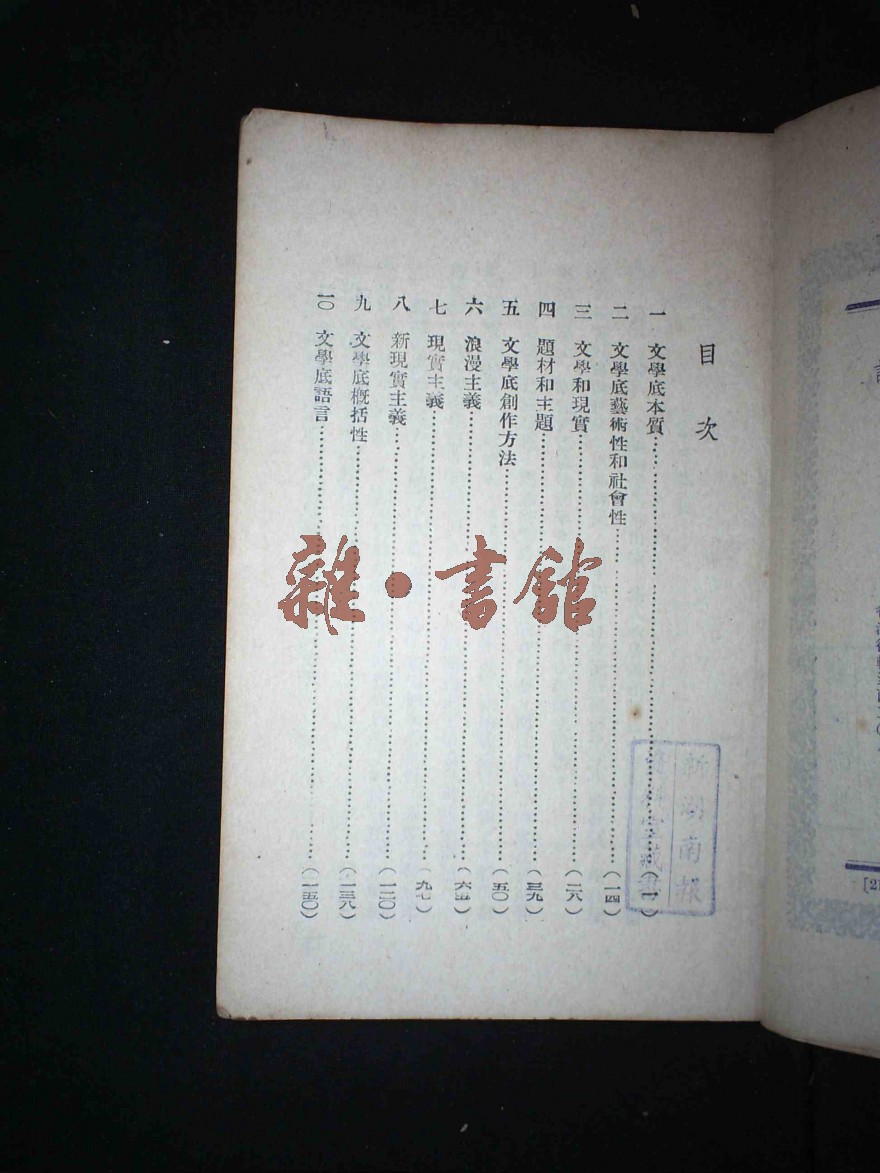 目次
一 文學底本質……(一)
二 文學底藝術性和社會性……(一四)
三 文學和現實……(二八)
四 題材和主題……(三九)
五 文學底創作方法……(五〇)
六 浪漫主義……(六五)
七 現實主義……(九七)
八 新現實主義……(一二〇)
九 文學底概括性……(一三八)
一〇 文學底語言……(一五〇)
新湖南報
資料室藏書
雜·書館